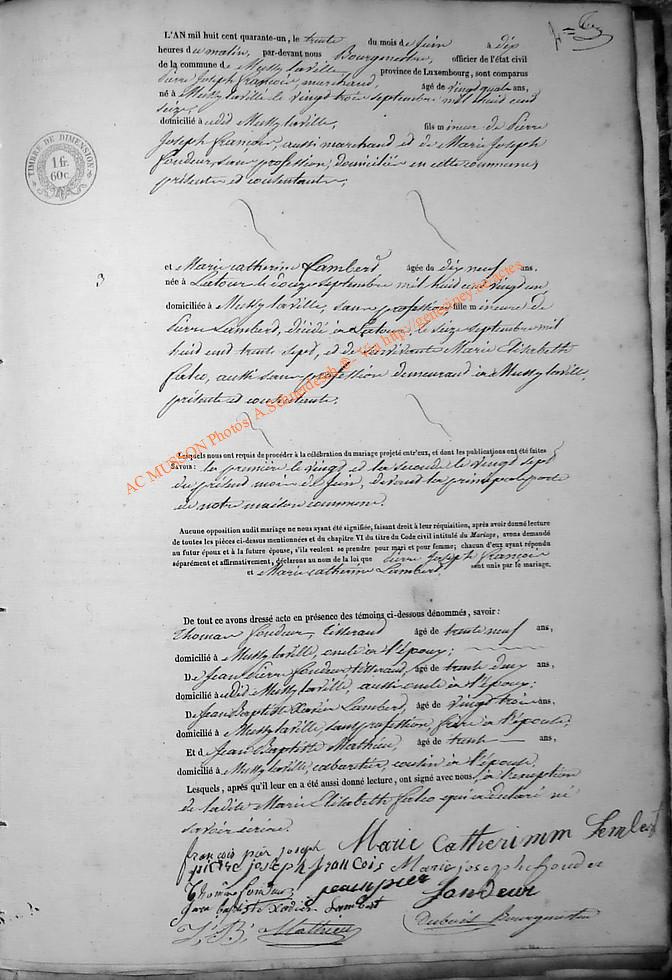 L'AN mil huit cent quarante-un, le trente du mois de Juin à dix
heures du matin, par-devant nous Bourgmestre, officier de l'état civil
de la commune de Mussy la ville province de Luxembourg, sont comparus
Pierre Joseph François, marchand, âgé de vingt quatre ans,
né à Mussy la ville le vingt trois septembre mil huit cent
seize,
domicilié à audit Mussy la ville, fils mineur de Pierre
Joseph François, aussi marchand et de Marie Joseph
Fondeur, sans profession, domiciliés en cette commune,
présents et consentants,
TIMBRE DE DIMENSION
1 fr.
60 c.
3
et Marie Catherine Lambert âgée de dix neuf ans,
née à Latour le douze septembre mil huit cent vingt un
domiciliée à Mussy la ville, sans profession fille mineure de
Pierre Lambert, décédé à Latour, le seize septembre mil
huit cent trente sept, et de survivante Marie Elisabeth
aussi sans profession demeurant à Mussy la ville,
présente et consentante,
AC MUSSON Photos A.Schneidesch ® - Via http//geneviney-et-actes
Lesquels nous ont requis de procéder à la célébration du mariage projeté entr'eux, et dont les publications ont été faites
SAVOIR : la première le vingt et la seconde le vingt sept
du présent mois de Juin, devant la principale porte
de notre maison commune.
Aucune opposition audit mariage ne nous ayant été signifiée, faisant droit à leur réquisition, après avoir donné lecture
de toutes les pièces ci-dessus mentionnées et du chapitre VI du titre du Code civil intitulé du Mariage, avons demandé
au futur époux et à la future épouse, s'ils veulent se prendre pour mari et pour femme; chacun d'eux ayant répondu
séparément et affirmativement, déclarons au nom de la loi que Pierre Joseph François
et Marie Catherine Lambert, sont unis par le mariage.
De tout ce avons dressé acte en présence des témoins ci-dessous dénommés, savoir :
Thomas Fondeur, âgé de trente neuf ans,
domicilié à Mussy la ville, oncle à l'époux;
De Jean Pierre Fondeur âgé de trente deux ans,
domicilié à audit Mussy la ville, aussi oncle à l'époux;
De Jean Baptiste Xavier Lambert, âgé de vingt trois ans,
domicilié à Mussy la ville, sans profession, frère à l'épouse;
Et de Jean Baptiste Mathieu, âgé de trente ans,
domicilié à Mussy la ville, cabaretier, cousin à l'épouse
Lesquels, après qu'il leur en a été aussi donné lecture, ont signé avec nous, à l'exception
de ladite Marie Elisabeth qui a déclaré ne
savoir écrire.
françois pier joseph Marie Catherimm Lembert
pierre joseph francois Marie joseph fondeur
Thomas fondeur jean pier fondeur
Jean baptiste Xavier Lambert
J. B. Mathieu Bourgmestre